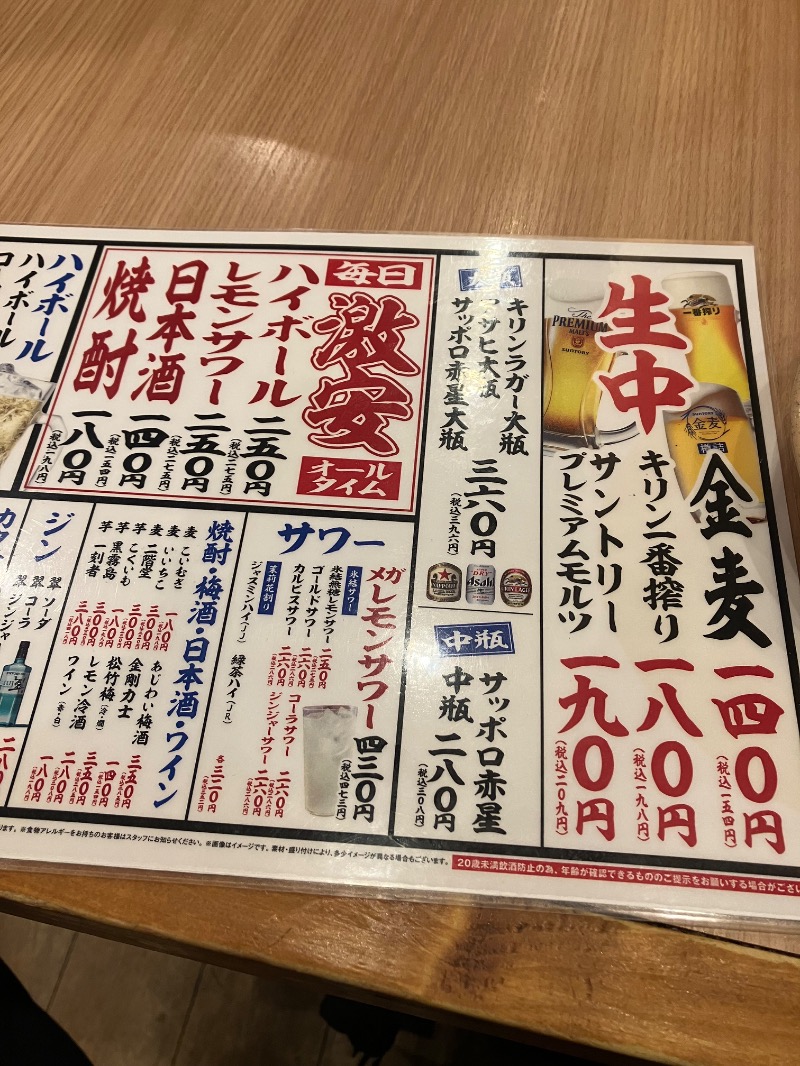 生中
金麦 一四〇円
(税込一五四円)
キリン一番搾り 一八〇円
(税込一九八円)
サントリー
プレミアムモルツ 一九〇円
(税込二〇九円)
The
PREMIUM
MALT'S
SUNTORY
一番搾り
SUNTORY
金麦
キリンラガー大瓶
アサヒ大瓶
サッポロ赤星大瓶
三六〇円
(税込三九六円)
Asahi
中瓶
サッポロ赤星
中瓶 二八〇円
(税込三〇八円)
毎日
激安
オール
タイム
ハイボール 二五〇円
(税込二七五円)
レモンサワー 二五〇円
(税込二七五円)
日本酒 一四〇円
(税込一五四円)
焼酎 一八〇円
(税込一九八円)
サワー
メガレモンサワー 四三〇円
(税込四七三円)
氷結サワー
氷結無糖レモンサワー 二五〇円
ゴールドサワー 二六〇円
カルピスサワー 二六〇円
コーラサワー 二六〇円
ジンジャーサワー 二六〇円
茉莉花割り
ジャスミンハイ(JJ)
緑茶ハイ(JR)
各三二〇円
焼酎・梅酒・日本酒・ワイン
麦 こいむぎ 一八〇円
麦 いいちこ 三〇〇円
麦 二階堂 三〇〇円
芋 こくいも 一八〇円
芋 黒霧島 三〇〇円
芋 一刻者 三八〇円
あじわい梅酒 三五〇円
金剛力士
松竹梅(冷・燗) 一四〇円
レモン冷酒 三五〇円
ワイン(赤・白)
ジン
翠 ソーダ
翠 コーラ
翠 ジンジャー
ハイボール
ハイボール
※食物アレルギーをお持ちのお客様はスタッフにお知らせください。※画像はイメージです。素材・盛り付けにより、多少イメージが異なる場合もございます。
20歳未満飲酒防止の為、年齢が確認できるもののご提示をお願いする場合がござい